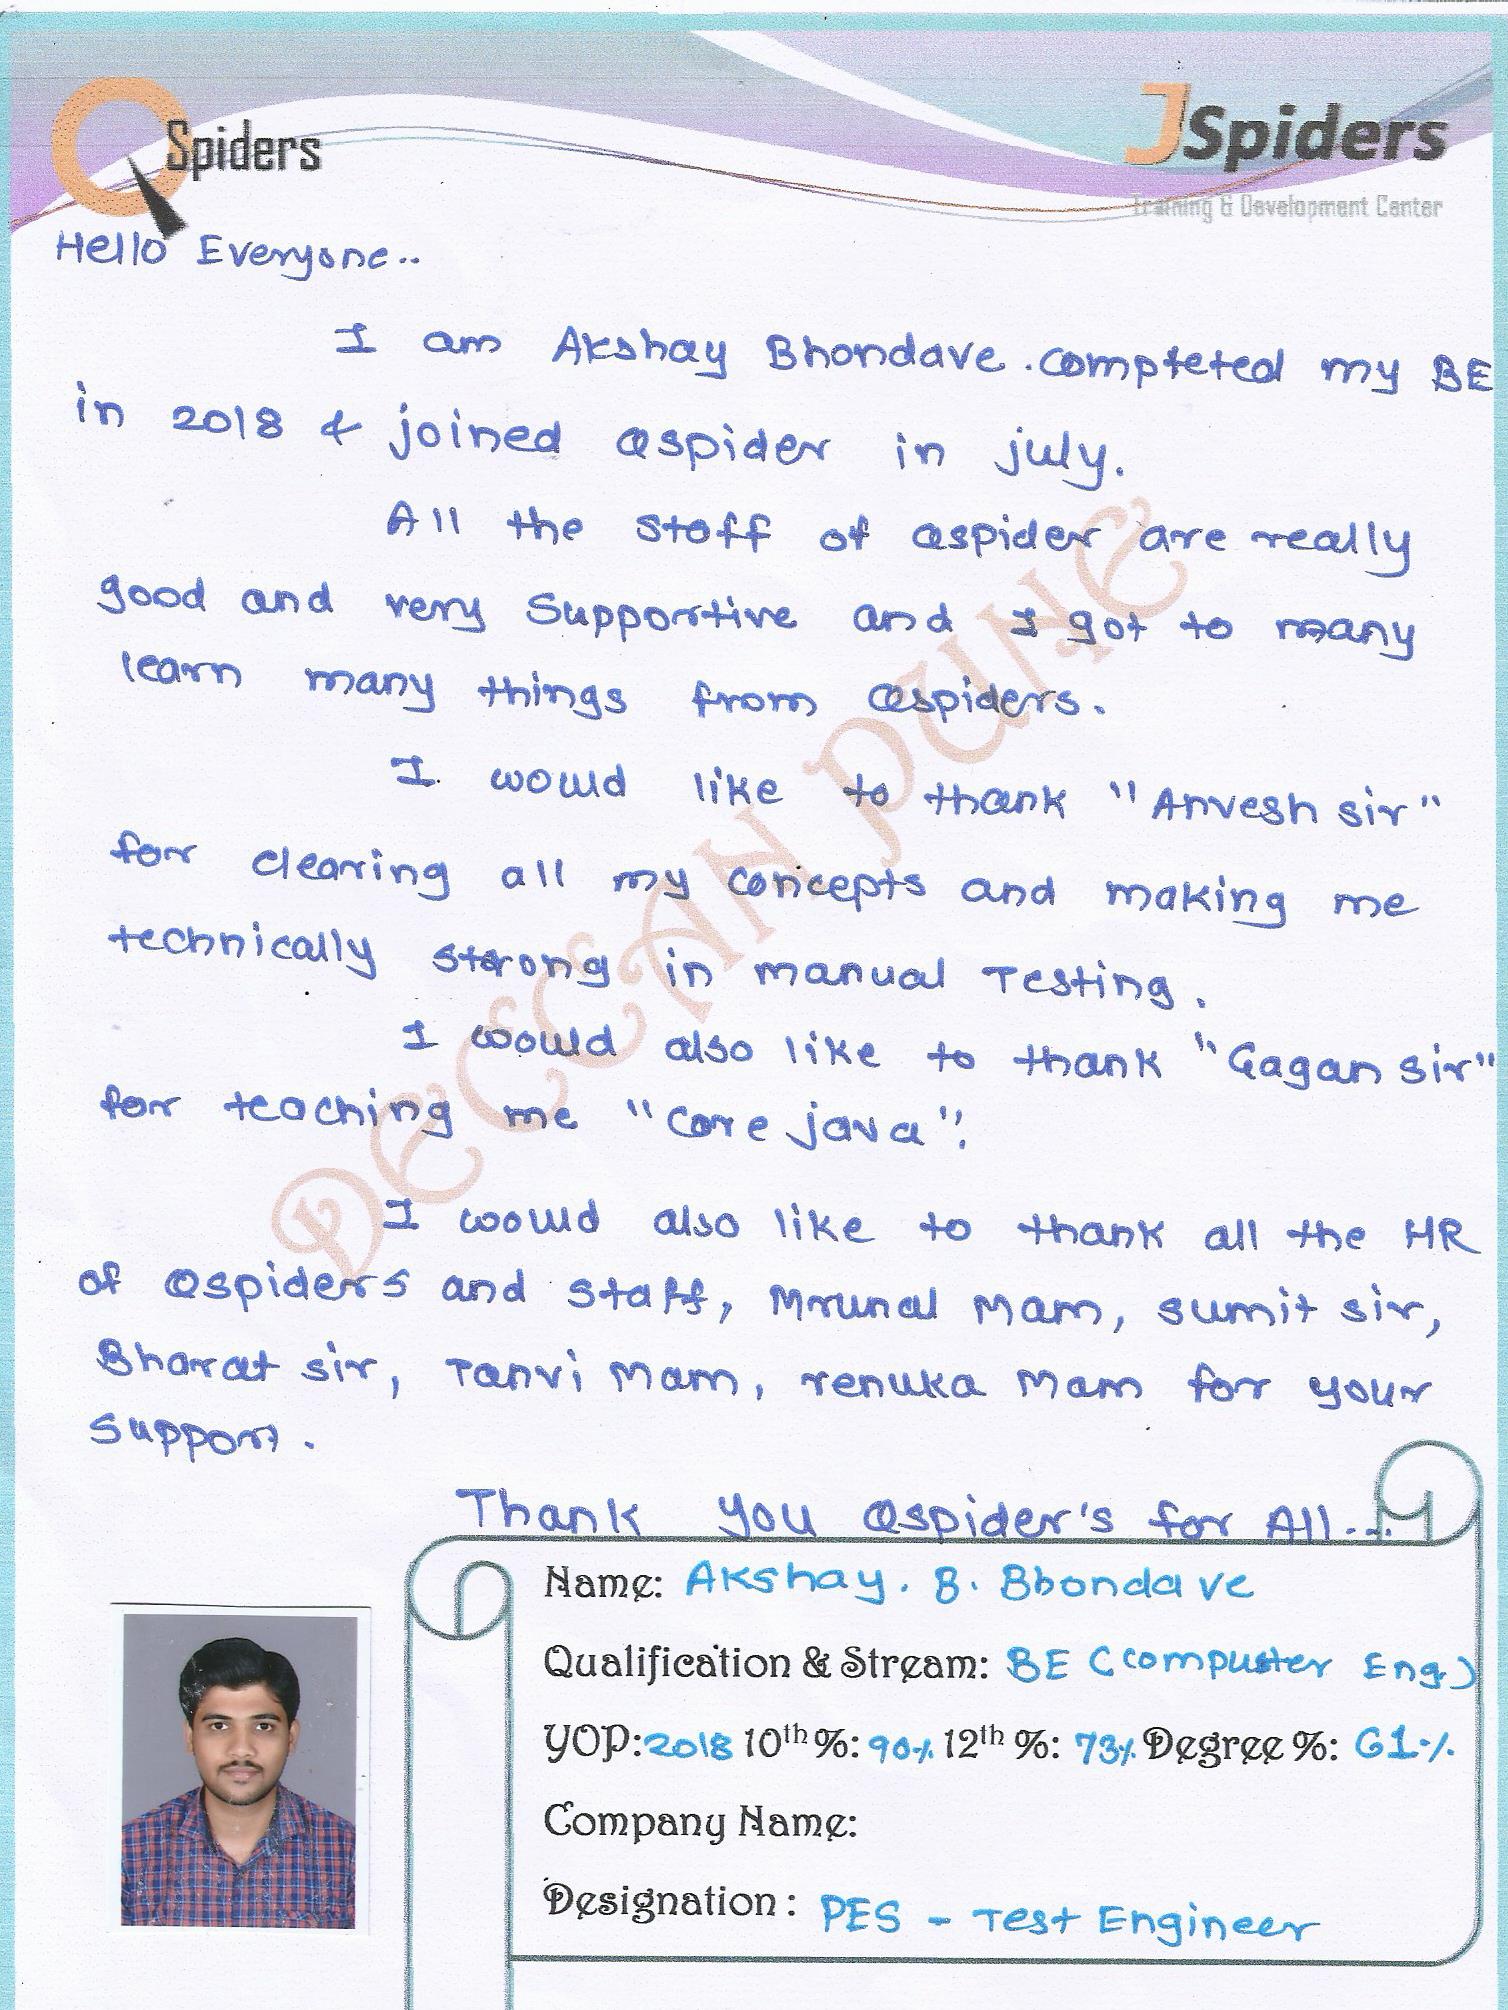 QSpiders
JSpiders
Training & Development Center
Hello Everyone..
I am Akshay Bhondave. completed my BE
in 2018 & joined Qspider in july.
All the staff of Qspider are really
good and very supportive and I got to many
learn many things from Qspiders.
I would like to thank "Anvesh sir"
for clearing all my concepts and making me
technically strong in manual Testing.
I would also like to thank "Gagan sir"
for teaching me "Core java".
I would also like to thank all the HR
of Qspiders and staff, Mrunal Mam, sumit sir,
Bharat sir, Tanvi Mam, renuka Mam for your
support.
Thank you Qspider's for All...
Name: Akshay. B. Bhondave
Qualification & Stream: BE (Computer Eng.)
YOP: 2018 10th %: 90% 12th %: 73% Degree %: 61%
Company Name:
Designation: PES - Test Engineer
DECCAN PUNE